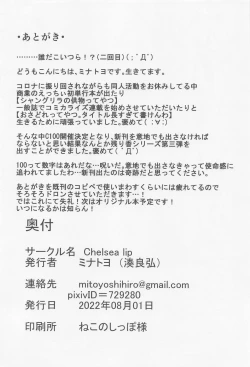 ・あとがき・
………誰だこいつら！？(二回目)(；´Д｀)
どうもこんにちは、ミナトヨです。生きてます。
コロナに振り回されながらも同人活動をお休みしてる中
商業のえっちい初単行本が出たり
【シャングリラの供物ってやつ】
一般でもコミカライズ連載を始めさせていただいたりと
【おさどれってやつ。タイトル長すぎて書けんわ】
生きるために頑張っていました。褒めて(；∀；)
そんな中C100開催決定となり、新刊を意地でも出さなければ
ならないと思い結果なんとか残り香シリーズ第三弾を
出すことができました。褒めて(；´Д｀)
100って数字はあれだな…呪いだ。意地でも出さなきゃって使命感に
追われてましたわ…新刊出たのは奇跡だと思ってください。
あとがきを既刊のコピペで使いまわすくらいには疲れてるので
そろそろドロンさせていただきます…！
ではこれにて失礼！次はオリジナル本予定です！
いつになるかは知らん！
奥付
サークル名 Chelsea lip
発行者 ミナトヨ (湊良弘)
連絡先 mitoyoshihiro@gmail.com
pixivID＝729280
発行日 2022年08月01日
印刷所 ねこのしっぽ様